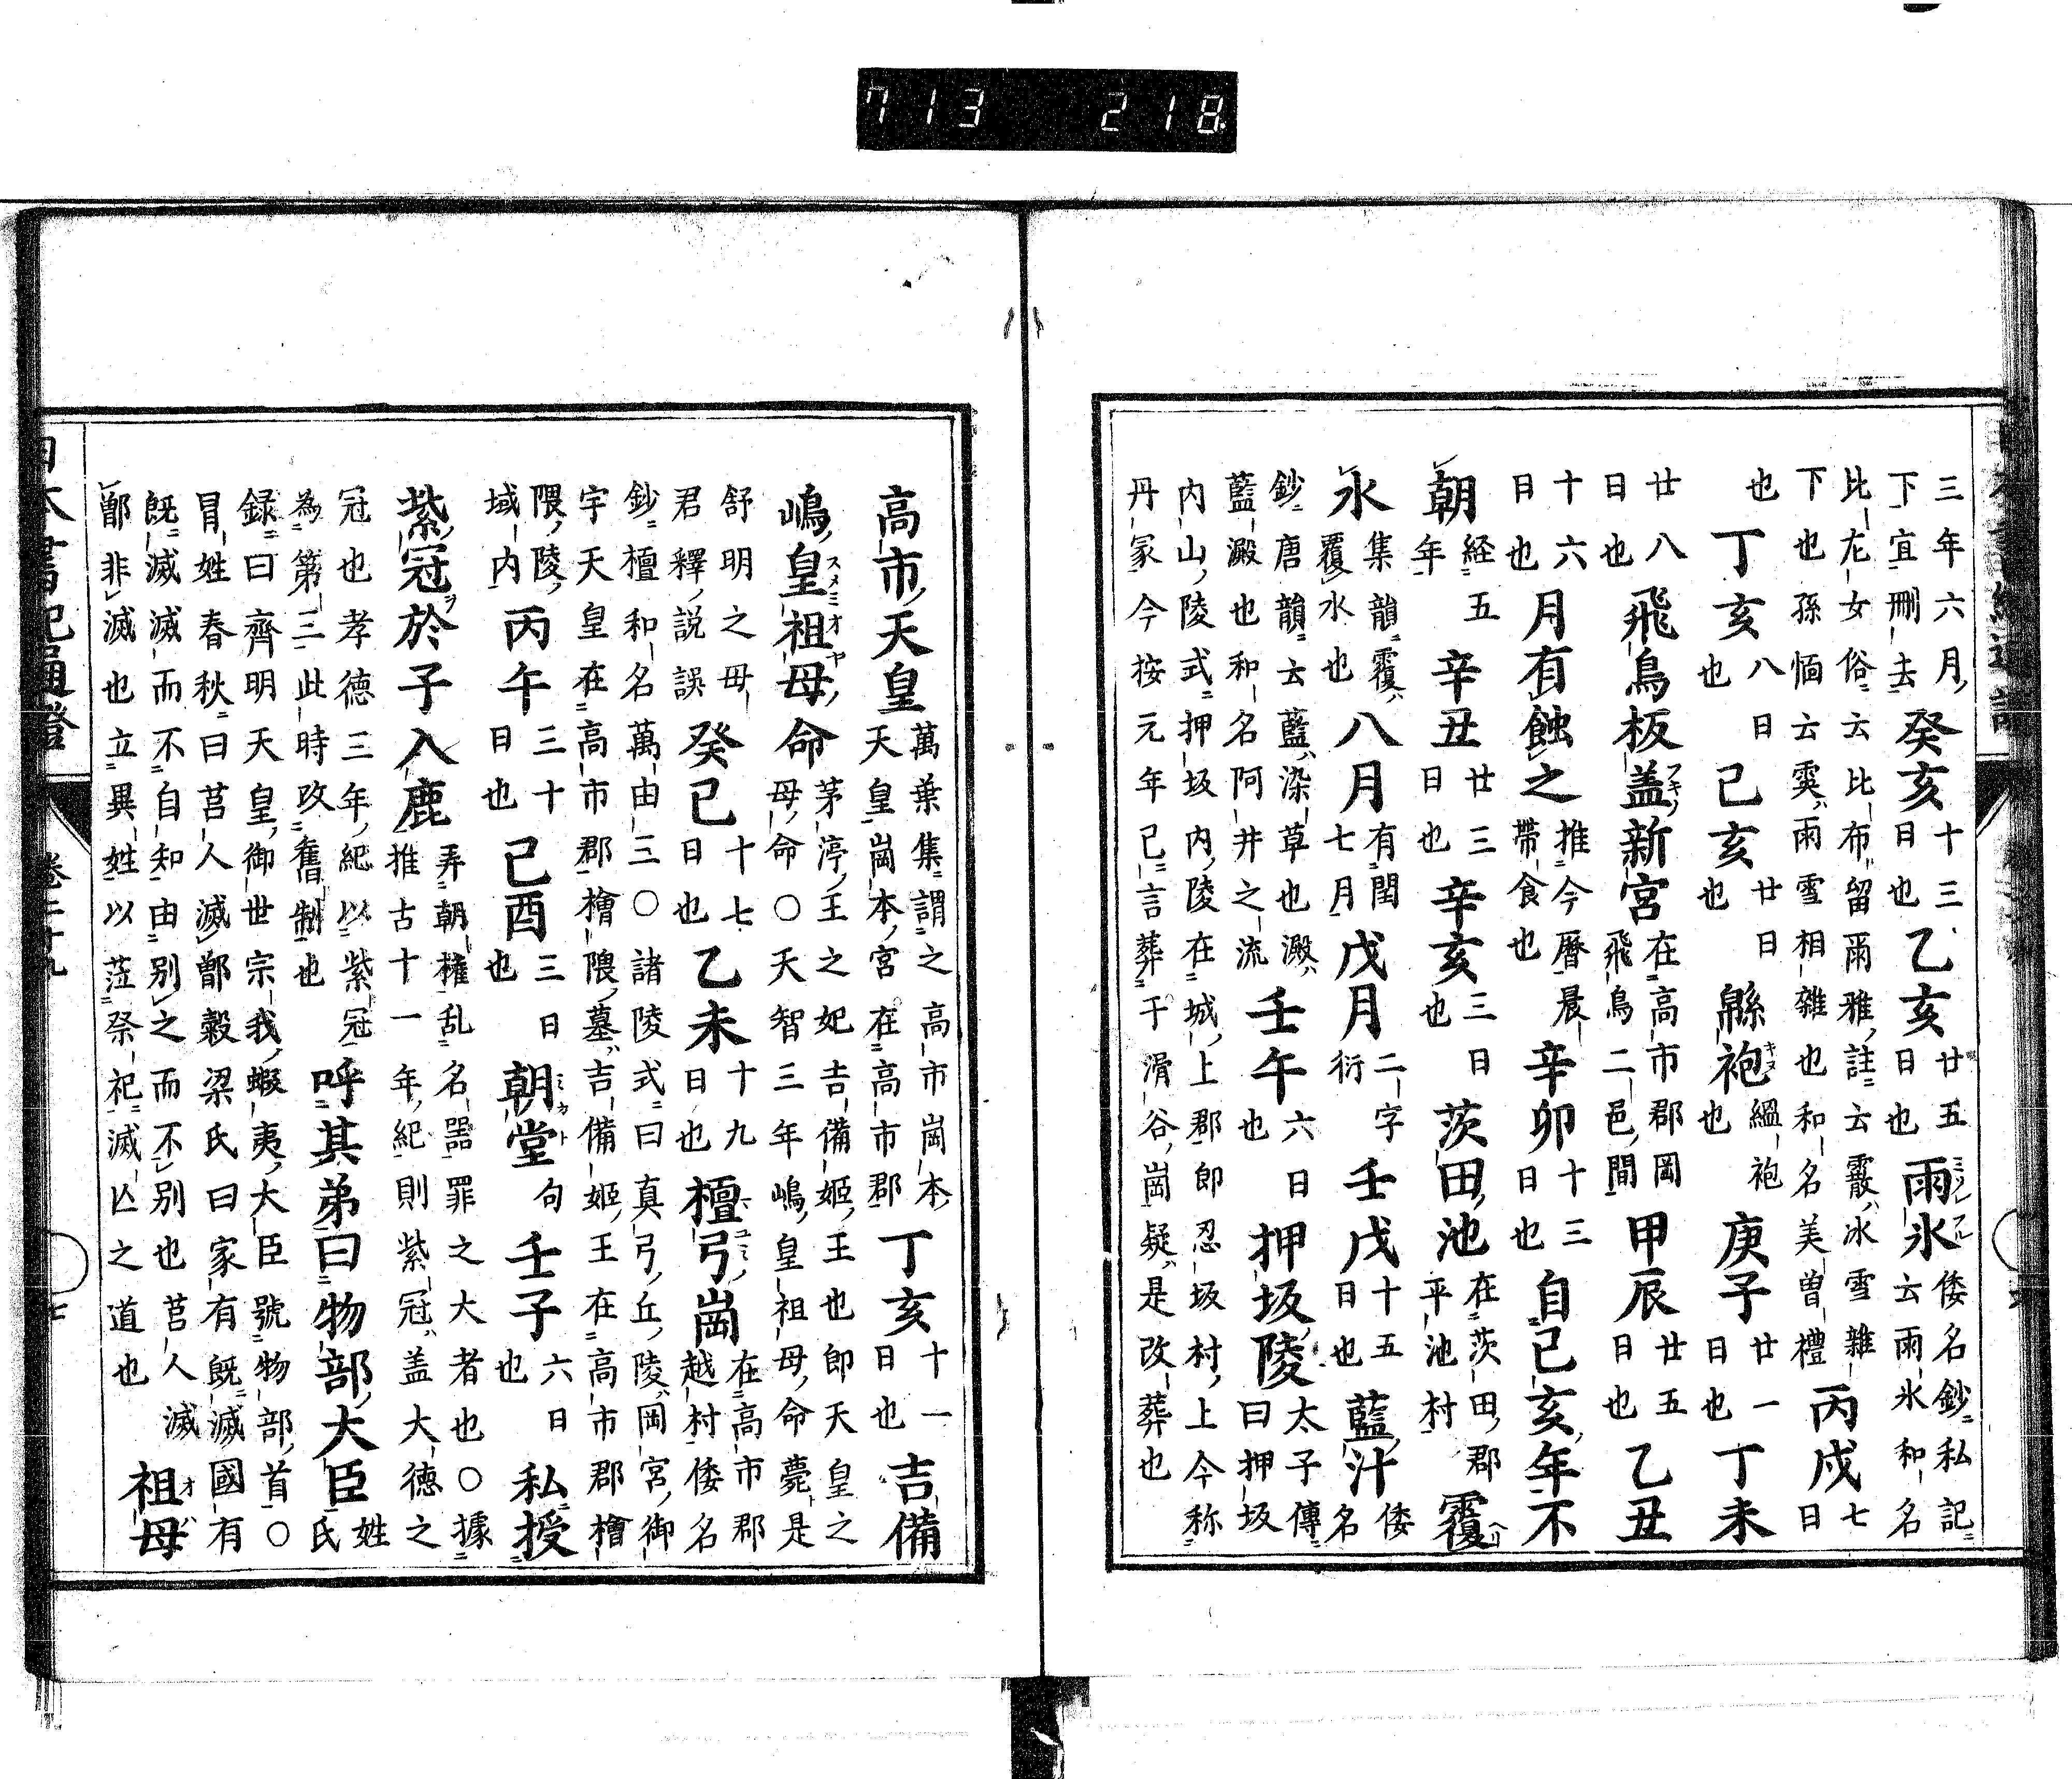 三年六月下宜刪去癸亥十三日也乙亥廿五日也雨氷倭名鈔私記云雨氷和名
比左女俗云比布留爾雅註云霰冰雪雜下也孫愐云霙雨雪相雜也和名美曽禮丙戌七日
也丁亥八日也己亥廿日也緜袍縕袍也庚子廿一日也丁未
廿八日也飛鳥板盖新宮在高市郡岡飛鳥二邑間甲辰廿五日也乙丑
十六日也月有蝕之推今曆晨帶食也辛卯十三日也自己亥年不
朝経五年辛丑廿三日也辛亥三日也茨田池在茨田郡平池村覆
氷集韻覆覆水也八月有閏七月戊月二字衍壬戌十五日也藍汁倭名
鈔唐韻云藍染草也澱藍澱也和名阿井之流壬午六日也押坂陵太子傳曰押坂
内山陵式押坂内陵在城上郡即忍坂村上今称丹冢今按元年已言葬于滑谷崗疑是改葬也
高市天皇萬葉集謂之高市崗本天皇崗本宮在高市郡丁亥十一日也吉備
嶋皇祖母命茅渟王之妃吉備姬王也即天皇之母命○天智三年嶋皇祖母命薨是
舒明之母君釋說誤癸巳十七日也乙未十九日也檀弓崗在高市郡越村倭名
鈔檀和名萬由三○諸陵式曰真弓丘陵岡宮御宇天皇在高市郡檜隈墓吉備姬王在高市郡檜
隈陵域内丙午三十日也己酉三日也朝堂句壬子六日也私授
紫冠於子入鹿弄朝權乱名器罪之大者也○據推古十一年紀則紫冠盖大德之
冠也孝德三年紀以紫冠為第三此時改舊制也呼其弟曰物部大臣姓氏
録曰齊明天皇御世宗我蝦夷大臣號物部首○冒姓春秋曰莒人滅鄫榖梁氏曰家有既滅國有
既滅滅而不自知由别之而不别也莒人滅鄫非滅也立異姓以莅祭祀滅亾之道也祖母
日本書紀通證 卷二十九 七
713 218